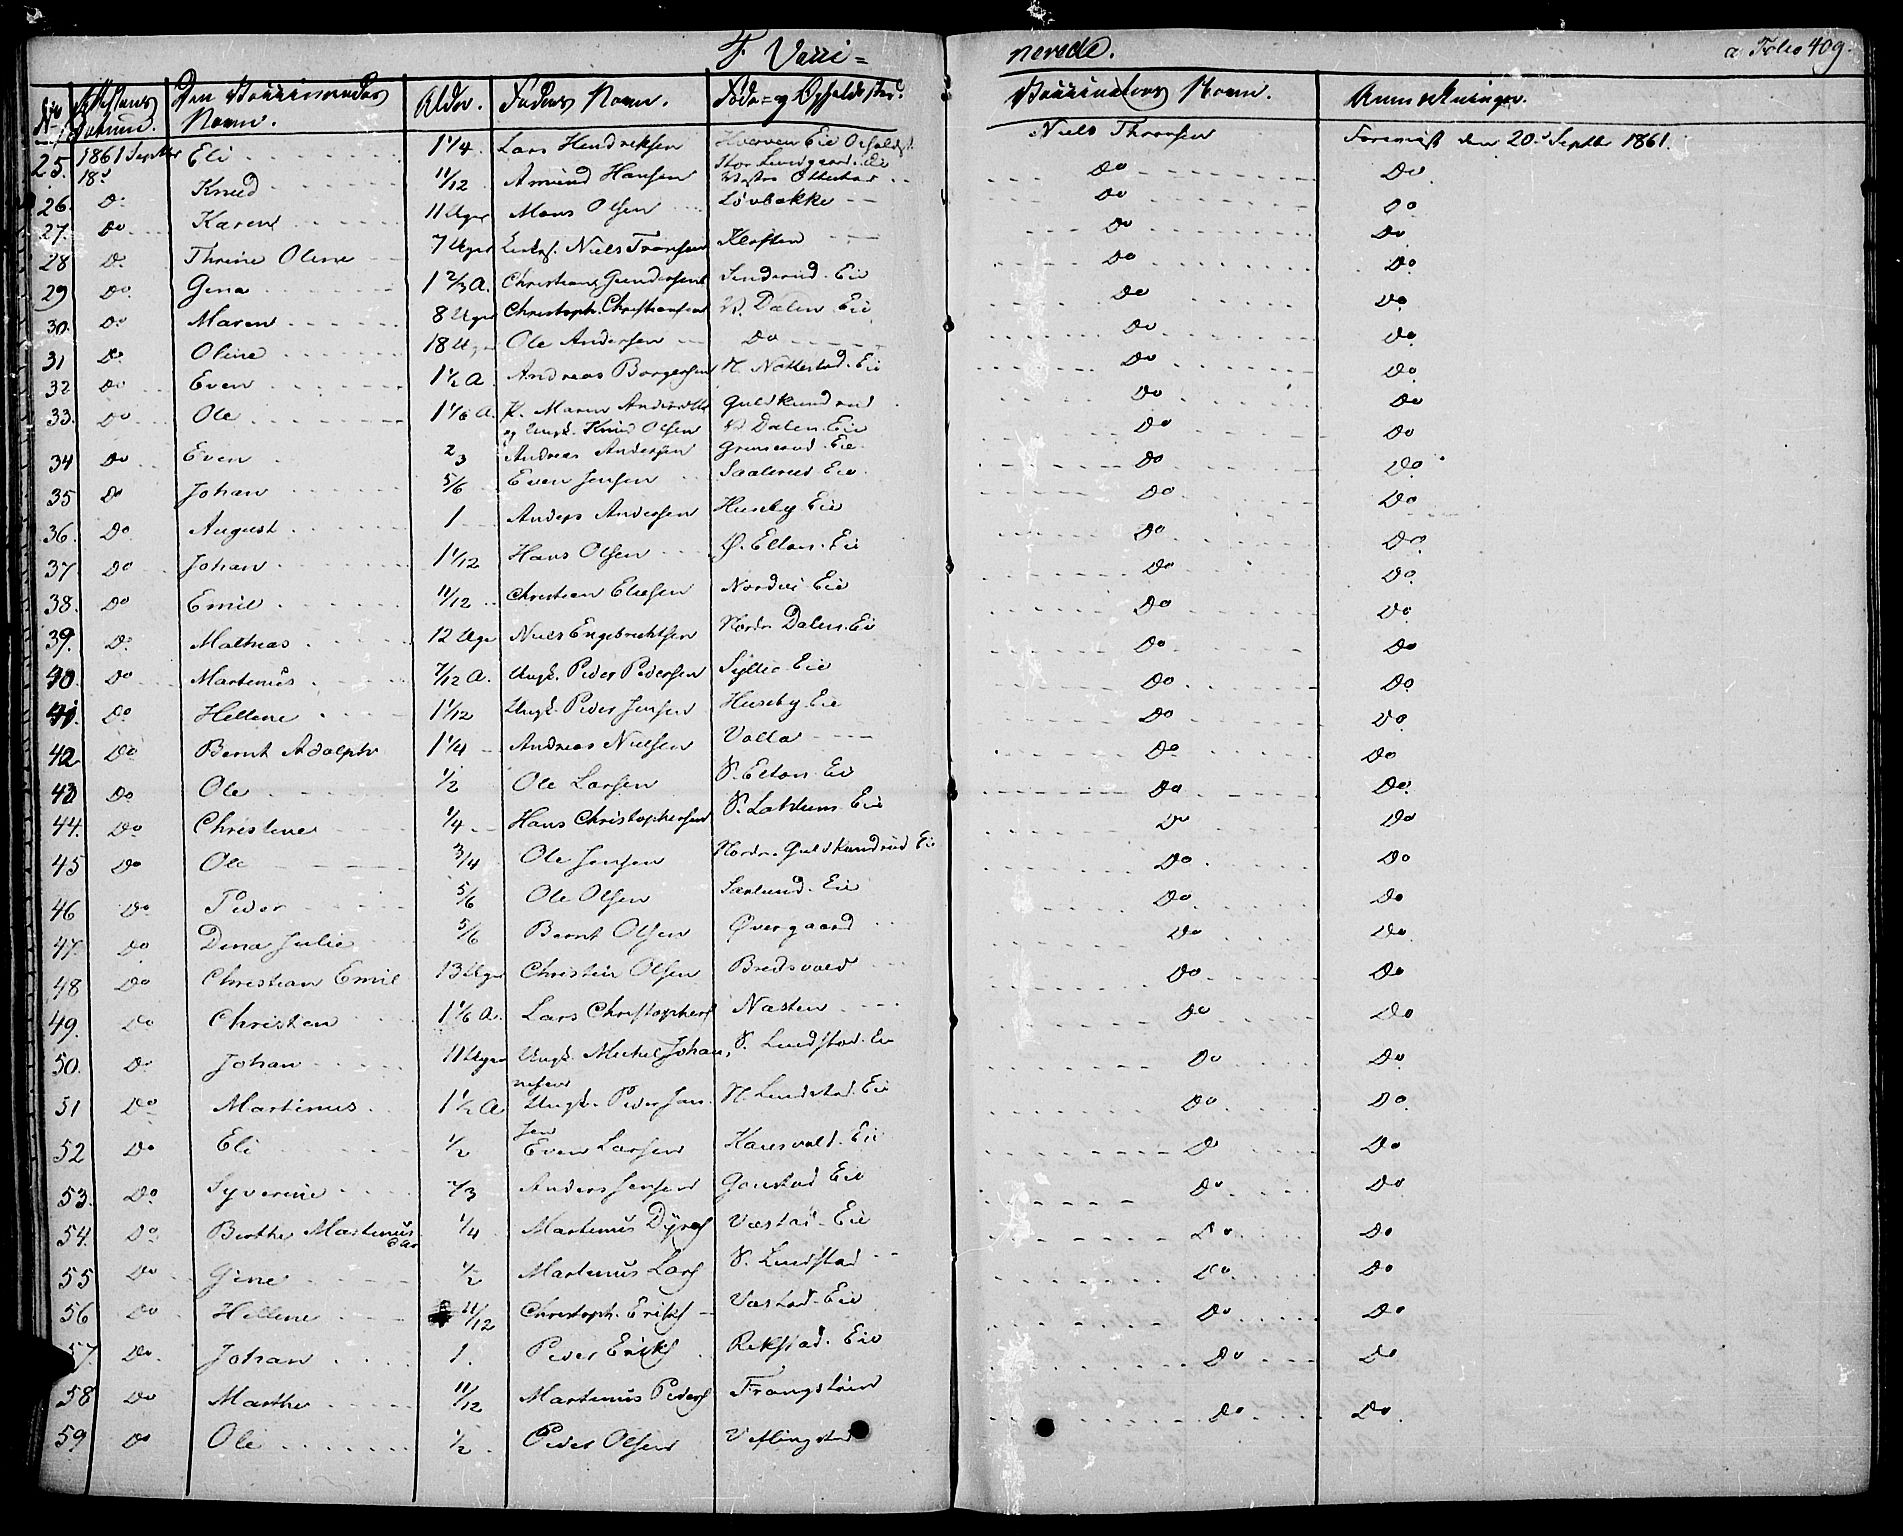 F. Vacci=
nerede.
a Folio 409.
No Attestens Datum. Den Vaccineredes Navn. Alder. Faders Navn. Føde= og Opholdsted. Vaccinateurs Navn. Anmærkninger.
25. 1861 Septbr 18d Eli 1 1/4 Lars Hendriksen Eie Niels Thronsen Foreviist den 20d Septbr 1861.
26. Do Knud 11/12 Amund Hansen Do Do
27. Do Karen 11 Uger Mons Olsen Løvbakke Do Do
28 Do Thrine Oline 7 Uger Niels Tronsen Kloften Do Do
29 Do Gina 1 2/3 A. Christian Gundersen Eie Do Do
30. Do Maren 8 Uger Christoph. Christiansen V. Dalen Eie Do Do
31 Do Oline 18 Uger Ole Andersen Do Do Do
32 Do Even 1 1/2 A. Andreas Borgersen N. Nottestad Eie Do Do
33. Do Ole 1 1/6 A. P. Maren Andersdtr Guldkundrud Do Do
og Ungk. Knud Olsen V. Dalen Eie
34 Do Even 2/3 Andreas Andersen Eie Do Do
35 Do Johan 5/6 Even Jensen Eie Do Do
36. Do August 1 Anders Andersen Huseby Eie Do Do
37. Do Johan 1 1/12 Hans Olsen Ø. Elton Eie Do Do
38. Do Emil 11/12 Christian Eliesen Nordvi Eie Do Do
39. Do Mathias 12 Uger Niels Engebrechtsen Nordr. Dalen Eie Do Do
40. Do Martinus 7/12 A. Ungk. Peder Pedersen Eie Do Do
41. Do Hellene 1 1/12 Ungk. Peder Jensen Huseby Eie Do Do
42 Do Bernt Adolph 1 1/4 Andreas Nielsen Volla Do Do
43 Do Ole 1/2 Ole Larsen S. Elton Eie Do Do
44. Do Christine 1/4 Hans Christophersen S. Lohlum Eie Do Do
45 Do Ole 3/4 Ole Jensen Nordr. Guldkundrud Eie Do Do
46 Do Peder 5/6 Ole Olsen Sørlund Eie Do Do
47. Do Dina Julie 5/6 Bernt Olsen Øvergaard Do Do
48 Do Christian Emil 13 Uger Christen Olsen Bredsvold Do Do
49. Do Christen 1 1/6 A. Lars Christophers Næsten Do Do
50. Do Johan 11 Uger Ungk. Michel Johan, S. Lundstad Eie Do Do
nesen
51 Do Martinus 1 1/2 A Ungk. Peder Jan N. Lundstad Eie Do Do
sen
52 Do Eli 1/2 Even Larsen Hansvold Eie Do Do
53. Do Syverine 2/3 Anders Jensen Gaustad Eie Do Do
54. Do Berthe Martinus 1/4 Martinus Dyres Væstad Eie Do Do
55 Do Gine 1/2 Martinus Lars S. Lundstad Do Do
56 Do Hellene 11/12 Christoph. Eriks Væstad Eie Do Do
57. Do Johan 1. Peder Eriks Rekstad Eie Do Do
58 Do Marthe 11/12 Martinus Peders Do Do
59 Do Ole 1/2 Peder Olsen Veflingstad